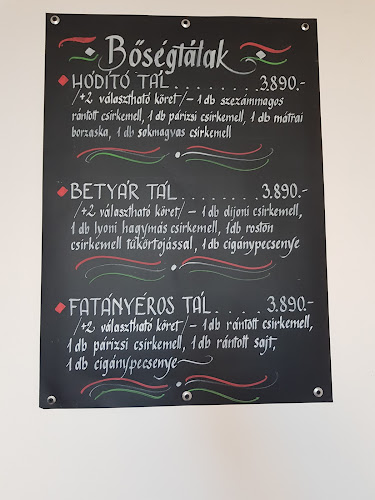 Bőségtálak
HÓDÍTÓ TÁL.........3.890.-
/+2 választható köret/- 1 db szezámmagos
rántott csirkemell, 1 db párizsi csirkemell, 1 db mátrai
borzaska, 1 db sokmagvas csirkemell
BETYÁR TÁL.........3.890.-
/+2 választható köret/- 1 db dijoni csirkemell,
1 db lyoni hagymás csirkemell, 1db roston
csirkemell tükörtojással, 1 db cigánypecsenye
FATÁNYÉROS TÁL.....3.890.-
/+2 választható köret/ - 1 db rántott csirkemell,
1 db párizsi csirkemell, 1 db rántott sajt,
1 db cigánypecsenye